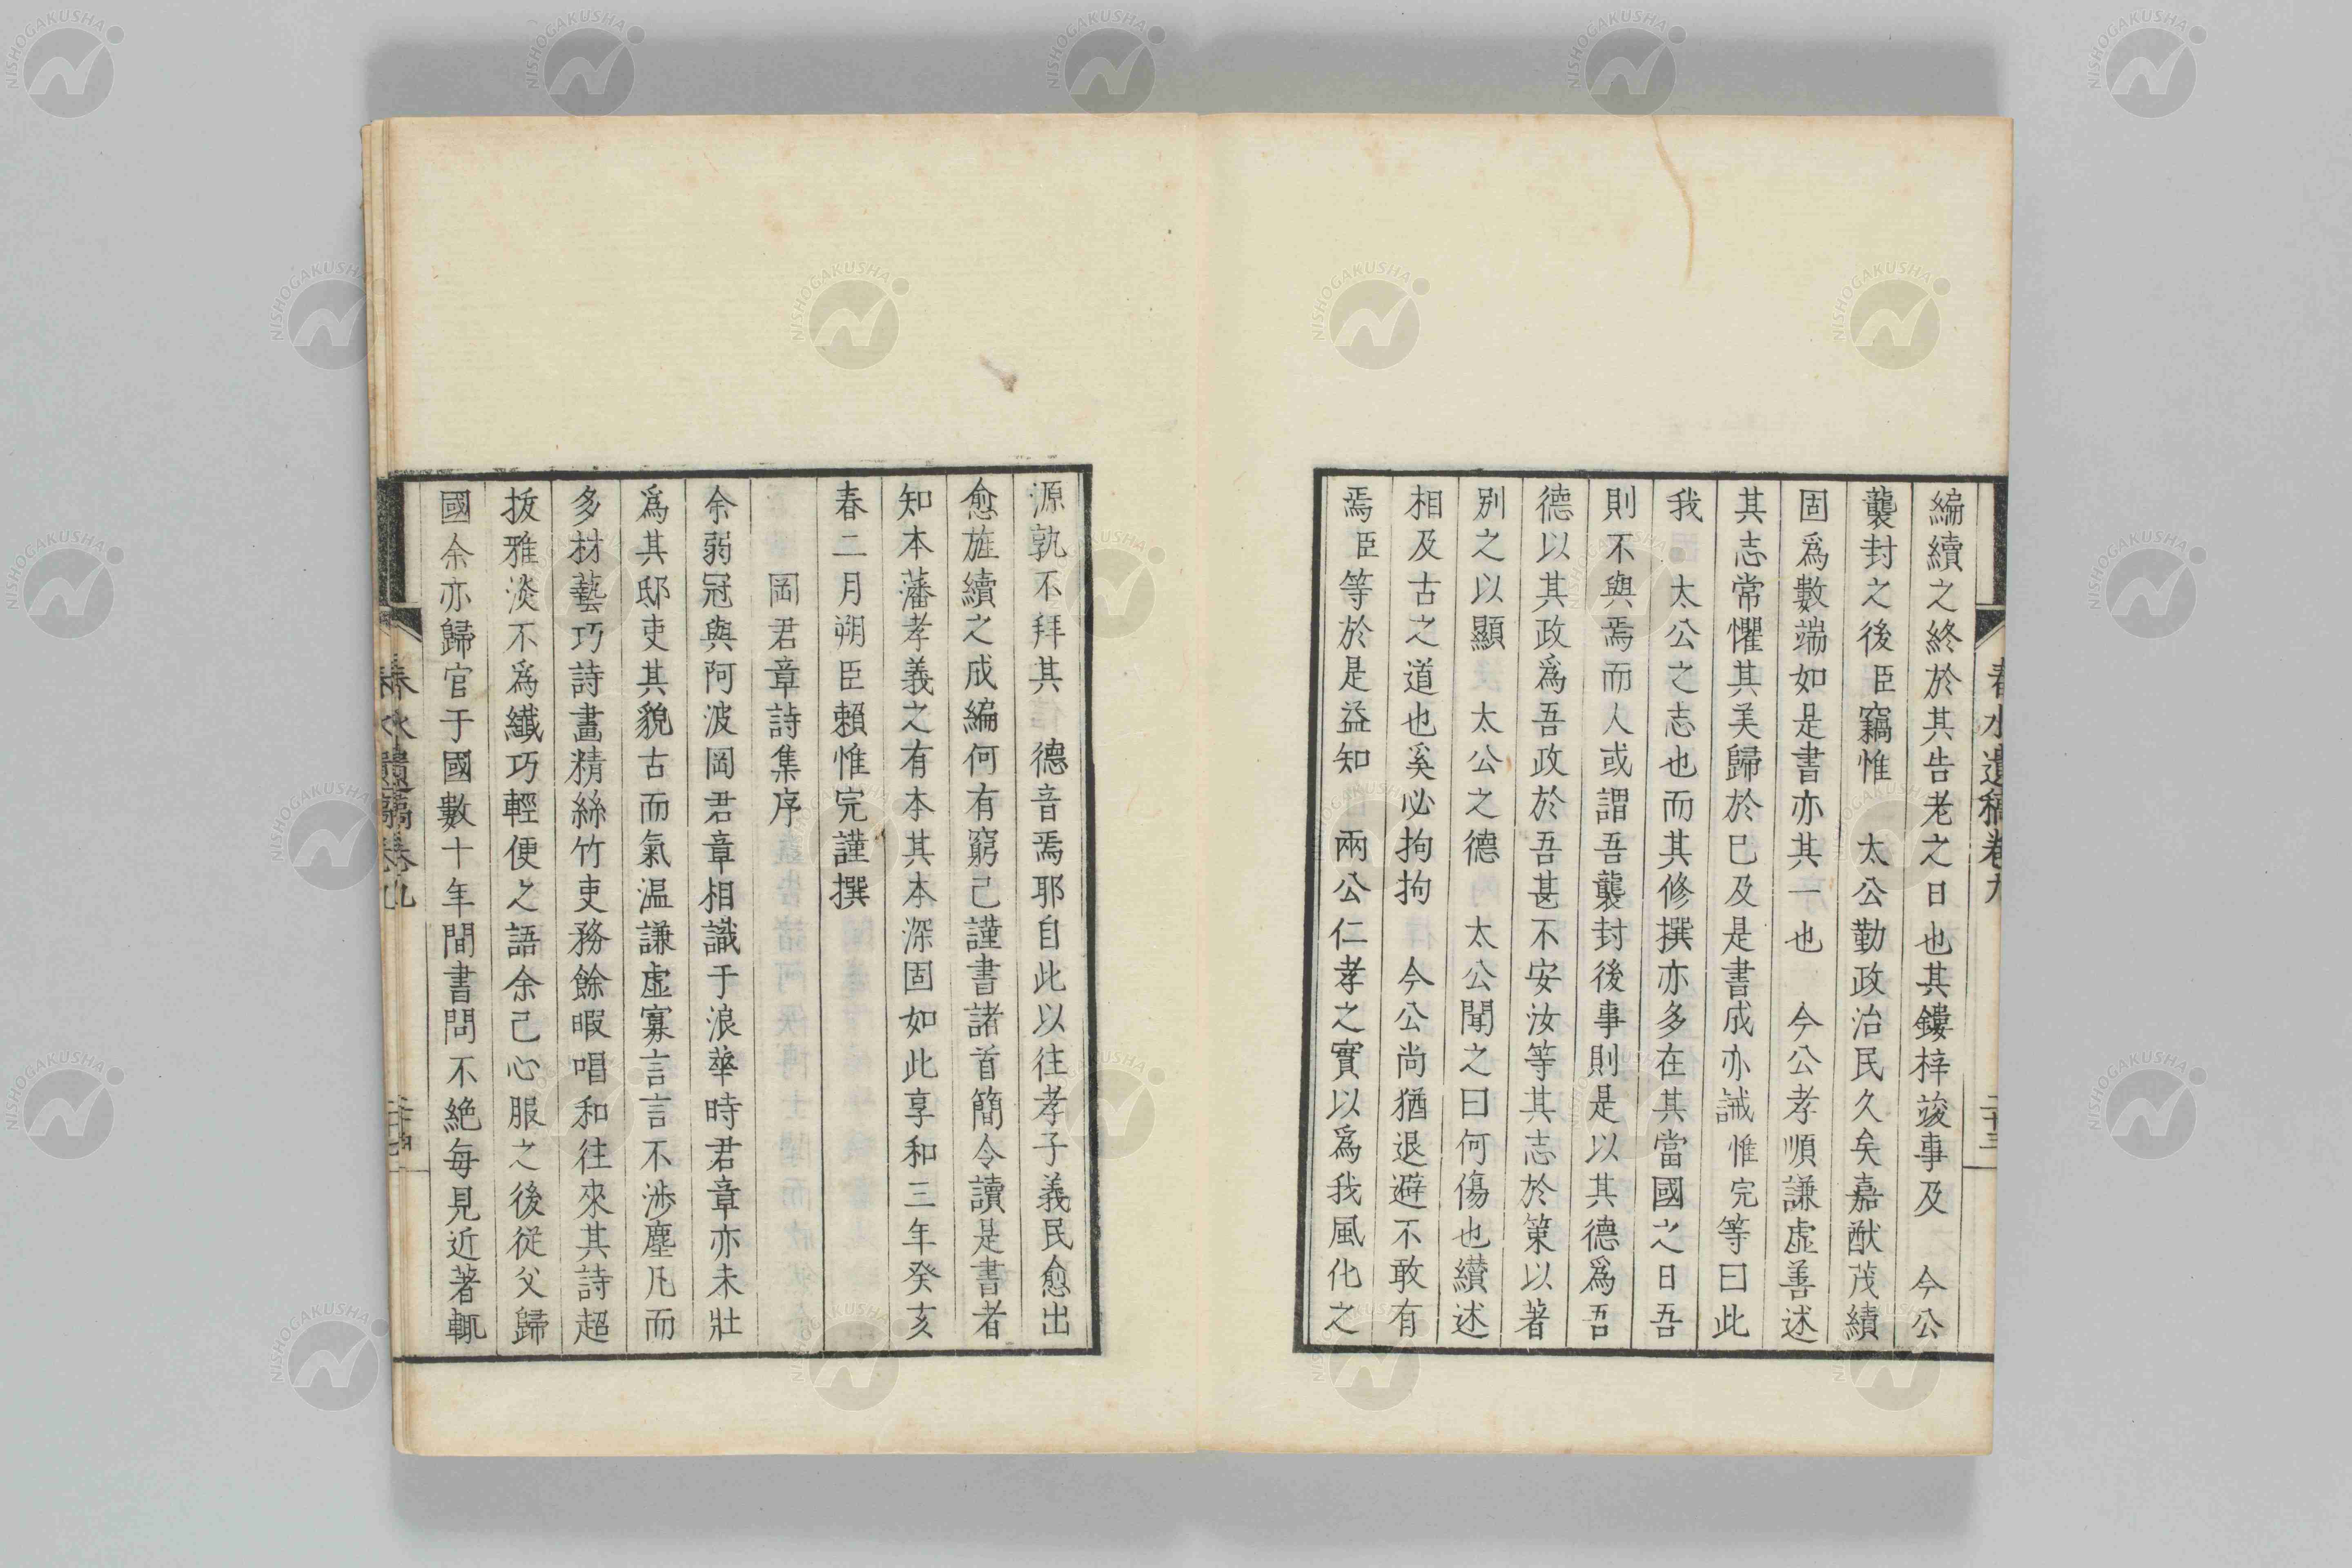 春水遺稿卷九
二十三
編續之終於其告老之日也其鏤梓竣事及　今公
襲封之後臣竊惟　太公勤政治民久矣嘉猷茂績
固爲數端如是書亦其一也　今公孝順謙虛善述
其志常懼其美歸於已及是書成亦誡惟完等曰此
我　太公之志也而其修撰亦多在其當國之日吾
則不與焉而人或謂吾襲封後事則是以其德爲吾
德以其政爲吾政於吾甚不安汝等其志於策以著
別之以顯　太公之德　太公聞之曰何傷也纘述
相及古之道也奚必拘拘　今公尚猶退避不敢有
焉臣等於是益知　兩公仁孝之實以爲我風化之
源孰不拜其　德音焉耶自此以往孝子義民愈出
愈旌續之成編何有窮己謹書諸首簡令讀是書者
知本藩孝義之有本其本深固如此享和三年癸亥
春二月朔臣賴惟完謹撰
岡君章詩集序
余弱冠與阿波岡君章相識于浪華時君章亦未壯
爲其邸吏其貌古而氣温謙虛寡言言不涉塵凡而
多材藝巧詩畫精絲竹吏務餘暇唱和往來其詩超
拔雅淡不爲纖巧輕便之語余己心服之後從父歸
國余亦歸官于國數十年間書問不絶每見近著輒
春水遺稿卷九